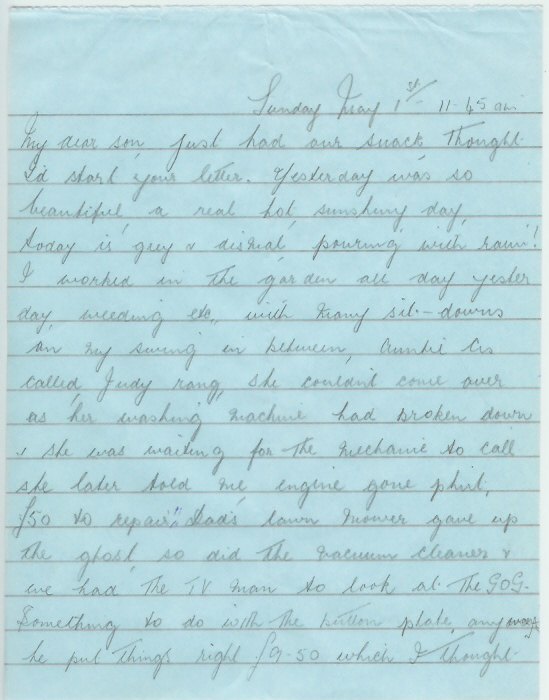 Sunday May 1st 11-45 am
My dear son, just had our snack, thought
I'd start your letter. Yesterday was so
beautiful, a real hot, sunshiny day,
today is grey & dismal, pouring with rain!
I worked in the garden all day yester
day, weeding etc, with many sit-downs
on my swing in between, Auntie Cis
called, Judy rang, she couldn't come over
as her washing machine had broken down
& she was waiting for the mechanic to call
she later told me, engine gone phut,
£50 to repair!! Dad's lawn mower gave up
the ghost, so did the vacuum cleaner &
we had the TV man to look at the GOG.
Something to do with the button plate, anyway
he put things right £9-50 which I thought